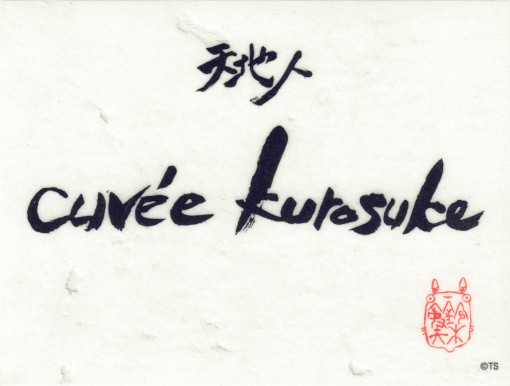 天地人
cuvée kurosuke
©TS